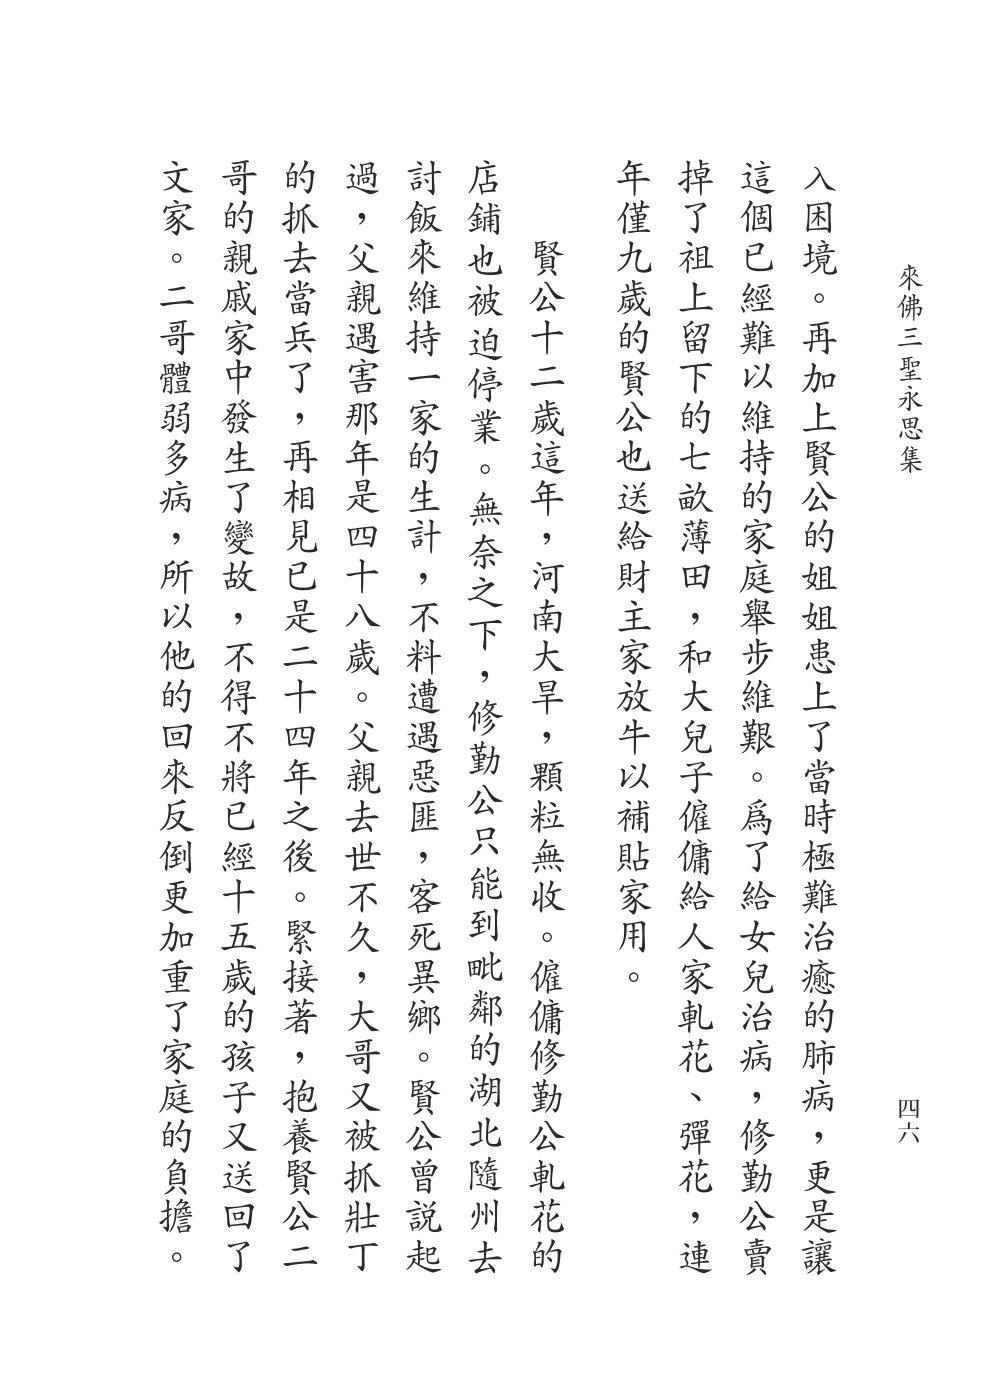 來佛三聖永思集
四六
入困境。再加上賢公的姐姐患上了當時極難治癒的肺病，更是讓
這個已經難以維持的家庭舉步維艱。爲了給女兒治病，修勤公賣
掉了祖上留下的七畝薄田，和大兒子僱傭給人家軋花、彈花，連
年僅九歲的賢公也送給財主家放牛以補貼家用。
賢公十二歲這年，河南大旱，顆粒無收。僱傭修勤公軋花的
店鋪也被迫停業。無奈之下，修勤公只能到毗鄰的湖北隨州去
討飯來維持一家的生計，不料遭遇惡匪，客死異鄉。賢公曾説起
過，父親遇害那年是四十八歲。父親去世不久，大哥又被抓壯丁
的抓去當兵了，再相見已是二十四年之後。緊接著，抱養賢公二
哥的親戚家中發生了變故，不得不將已經十五歲的孩子又送回了
文家。二哥體弱多病，所以他的回來反倒更加重了家庭的負擔。